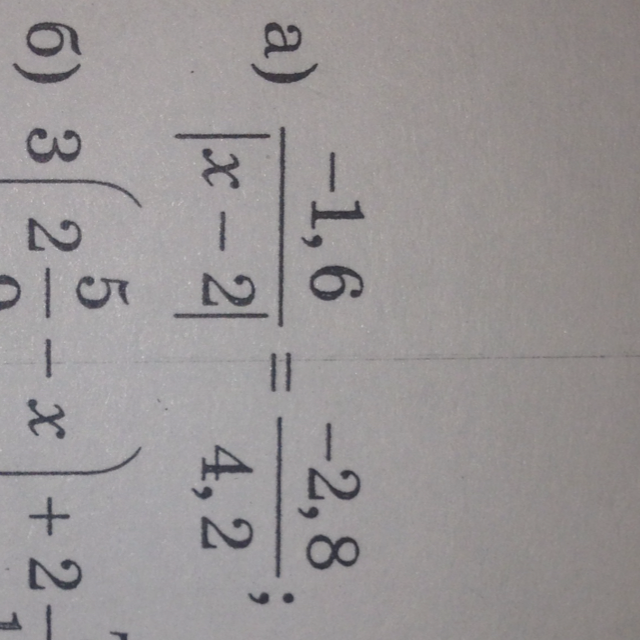 а) −1,6 / |x − 2| = −2,8 / 4,2 ;
б) 3(2 5/9 − x) + 2